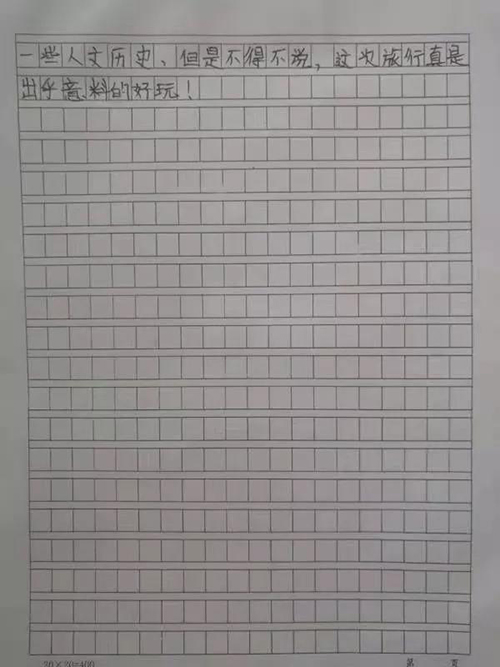 一些人文历史、但是不得不说，这次旅行真是
出乎意料的好玩！
20×20=400
第 页